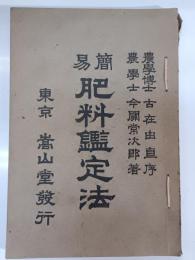 農學博士 古在由直序
農學士 今關常次郎著
簡易 肥料鑑定法
東京 嵩山堂發行